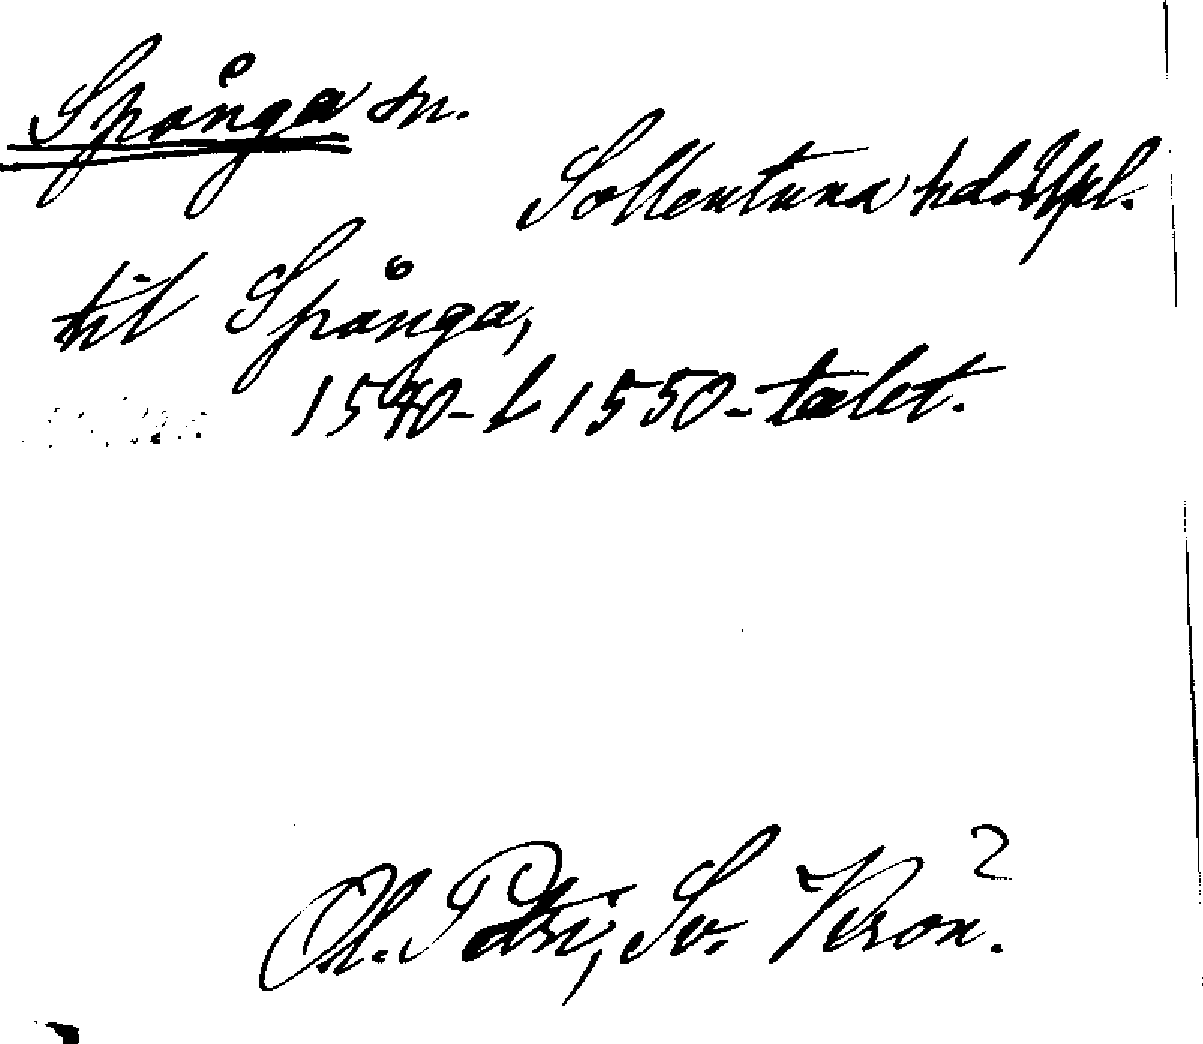 Spånga sn.
Sollentuna hd. Upl.
til Spånga,
1540- l 1550-talet.
Ol. Petri, Sv. Kron.²